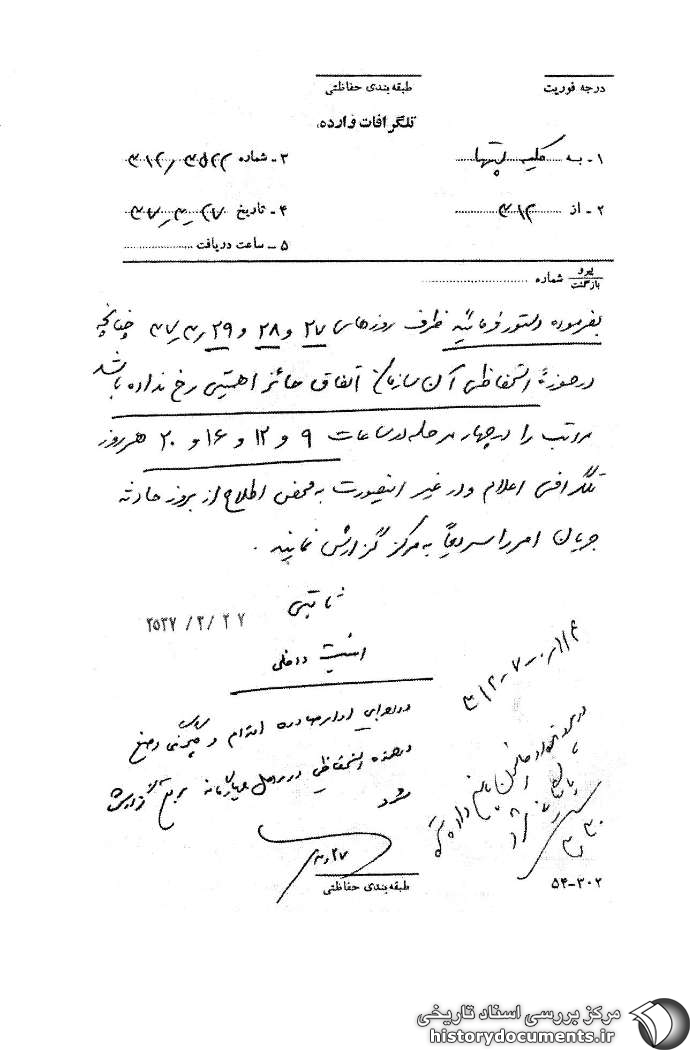 درجه فوریت
طبقه‌بندی حفاظتی
تلگرافات وارده
۱ - به کلیه پستها
۳ - شماره ۳۱۲/۳۵۲۲
۲ - از ۳۱۲
۴ - تاریخ ۳۷/۳/۲۷
۵ - ساعت دریافت
پیرو
بازگشت شماره
بفرموده دستور فرمائید ظرف روزهای ۲۷ و ۲۸ و ۲۹/۳/۳۷ چنانچه
در حوزه استحفاظی آن سازمان اتفاق حائز اهمیتی رخ نداده باشد
مراتب را در چهار مرحله در ساعات ۹ و ۱۲ و ۱۶ و ۲۰ هر روز
تلگرافی اعلام و در غیر اینصورت به محض اطلاع از بروز حادثه
جریان امر را سریعاً به مرکز گزارش نمایید.
ثابتی
۲۵۳۷/۳/۲۷
امنیت داخلی
در اجرای اوامر صادره اقدام و چگونگی وضع
در مراحل چهارگانه گزارش
شود
۲۷
داده شد
طبقه‌بندی حفاظتی
۵۴-۳۰۲
مرکز بررسی اسناد تاریخی
historydocuments.ir